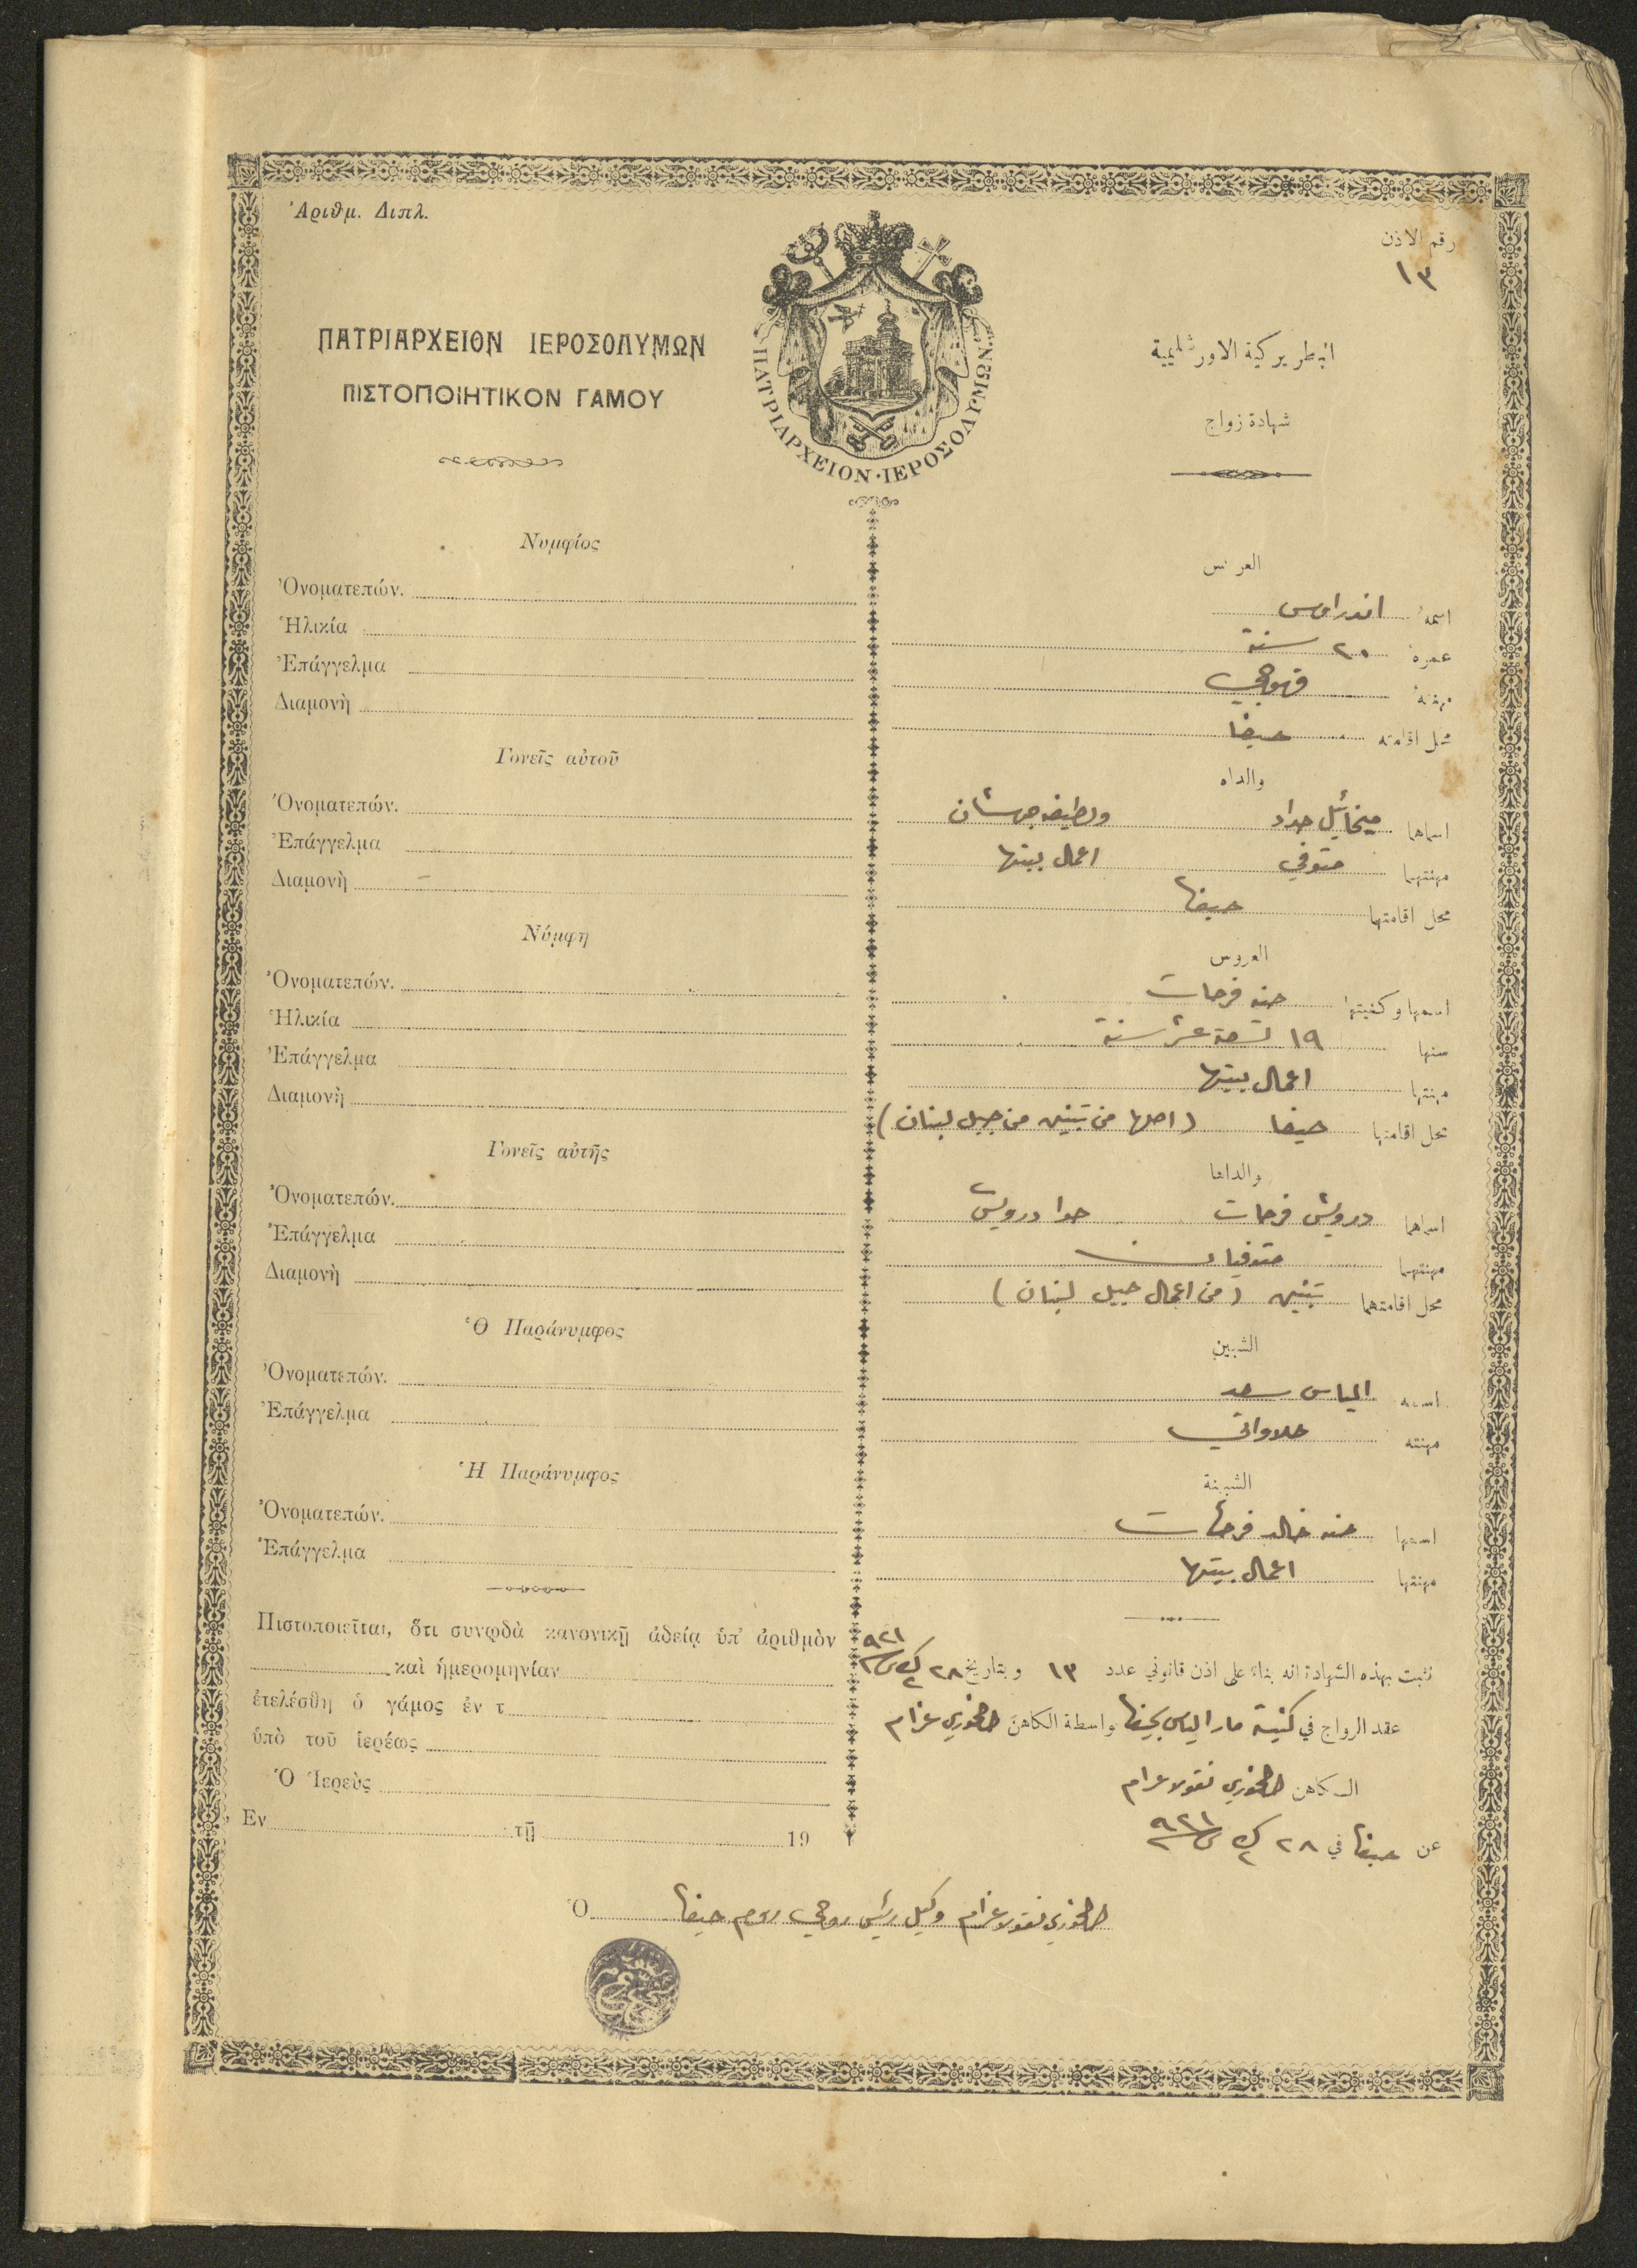 Ἀριθμ. Διπλ.
رقم الاذن
١٣
ΠΑΤΡΙΑΡΧΕΙΟΝ ΙΕΡΟΣΟΛΥΜΩΝ
ΠΙΣΤΟΠΟΙΗΤΙΚΟΝ ΓΑΜΟΥ
ΠΑΤΡΙΑΡΧΕΙΟΝ·ΙΕΡΟΣΟΛΥΜΩΝ
البطريركية الاورشليمية
شهادة زواج
Νυμφίος
Ὀνοματεπών.
Ἡλικία
Ἐπάγγελμα
Διαμονὴ
Γονεῖς αὐτοῦ
Ὀνοματεπών.
Ἐπάγγελμα
Διαμονὴ
Νύμφη
Ὀνοματεπών.
Ἡλικία
Ἐπάγγελμα
Διαμονὴ
Γονεῖς αὐτῆς
Ὀνοματεπών.
Ἐπάγγελμα
Διαμονὴ
Ὁ Παράνυμφος
Ὀνοματεπών.
Ἐπάγγελμα
Ἡ Παράνυμφος
Ὀνοματεπών.
Ἐπάγγελμα
Πιστοποιεῖται, ὅτι συνῳδὰ κανονικῇ ἀδείᾳ ὑπ' ἀριθμὸν
καὶ ἡμερομηνίαν
ἐτελέσθη ὁ γάμος ἐν τ
ὑπὸ τοῦ ἱερέως
Ὁ Ἱερεὺς
Ἐν τῇ 19
العريس
اسمهُ اندراوس
عمرهُ ٢٠ سنة
مهنتهُ قهوجي
محل اقامته حيفا
والداه
اسماهما ميخائيل حداد ولطيفه جهشان
مهنتهما متوفي اعمال بيتها
محل اقامتهما حيفا
العروس
اسمها وكنيتها حنه فرحات
سنها ١٩ تسعة عشر سنة
مهنتها اعمال بيتها
محل اقامتها حيفا (اصلها من تبنين من جبل لبنان)
والداها
اسماهما درويش فرحات حوا درويش
مهنتهما متوفيان
محل اقامتهما تبنين (من اعمال جبل لبنان)
الشبين
اسمه الياس سعد
مهنته حلاواتي
الشبينة
اسمها حنه خالد فرحات
مهنتها اعمال بيتها
نثبت بهذه الشهادة انه بناء على اذن قانوني عدد ١٣ وبتاريخ ٢٨ ك٢ ٩٢١
عقد الزواج في كنيسة مار الياس بحيفا واسطة الكاهن الخوري عزام
الكاهن الخوري نقولا عزام
عن حيفا في ٢٨ ك٢ ٩٢١
Ὁ الخوري نقولا عزام وكيل رئيس روحي روم حيفا